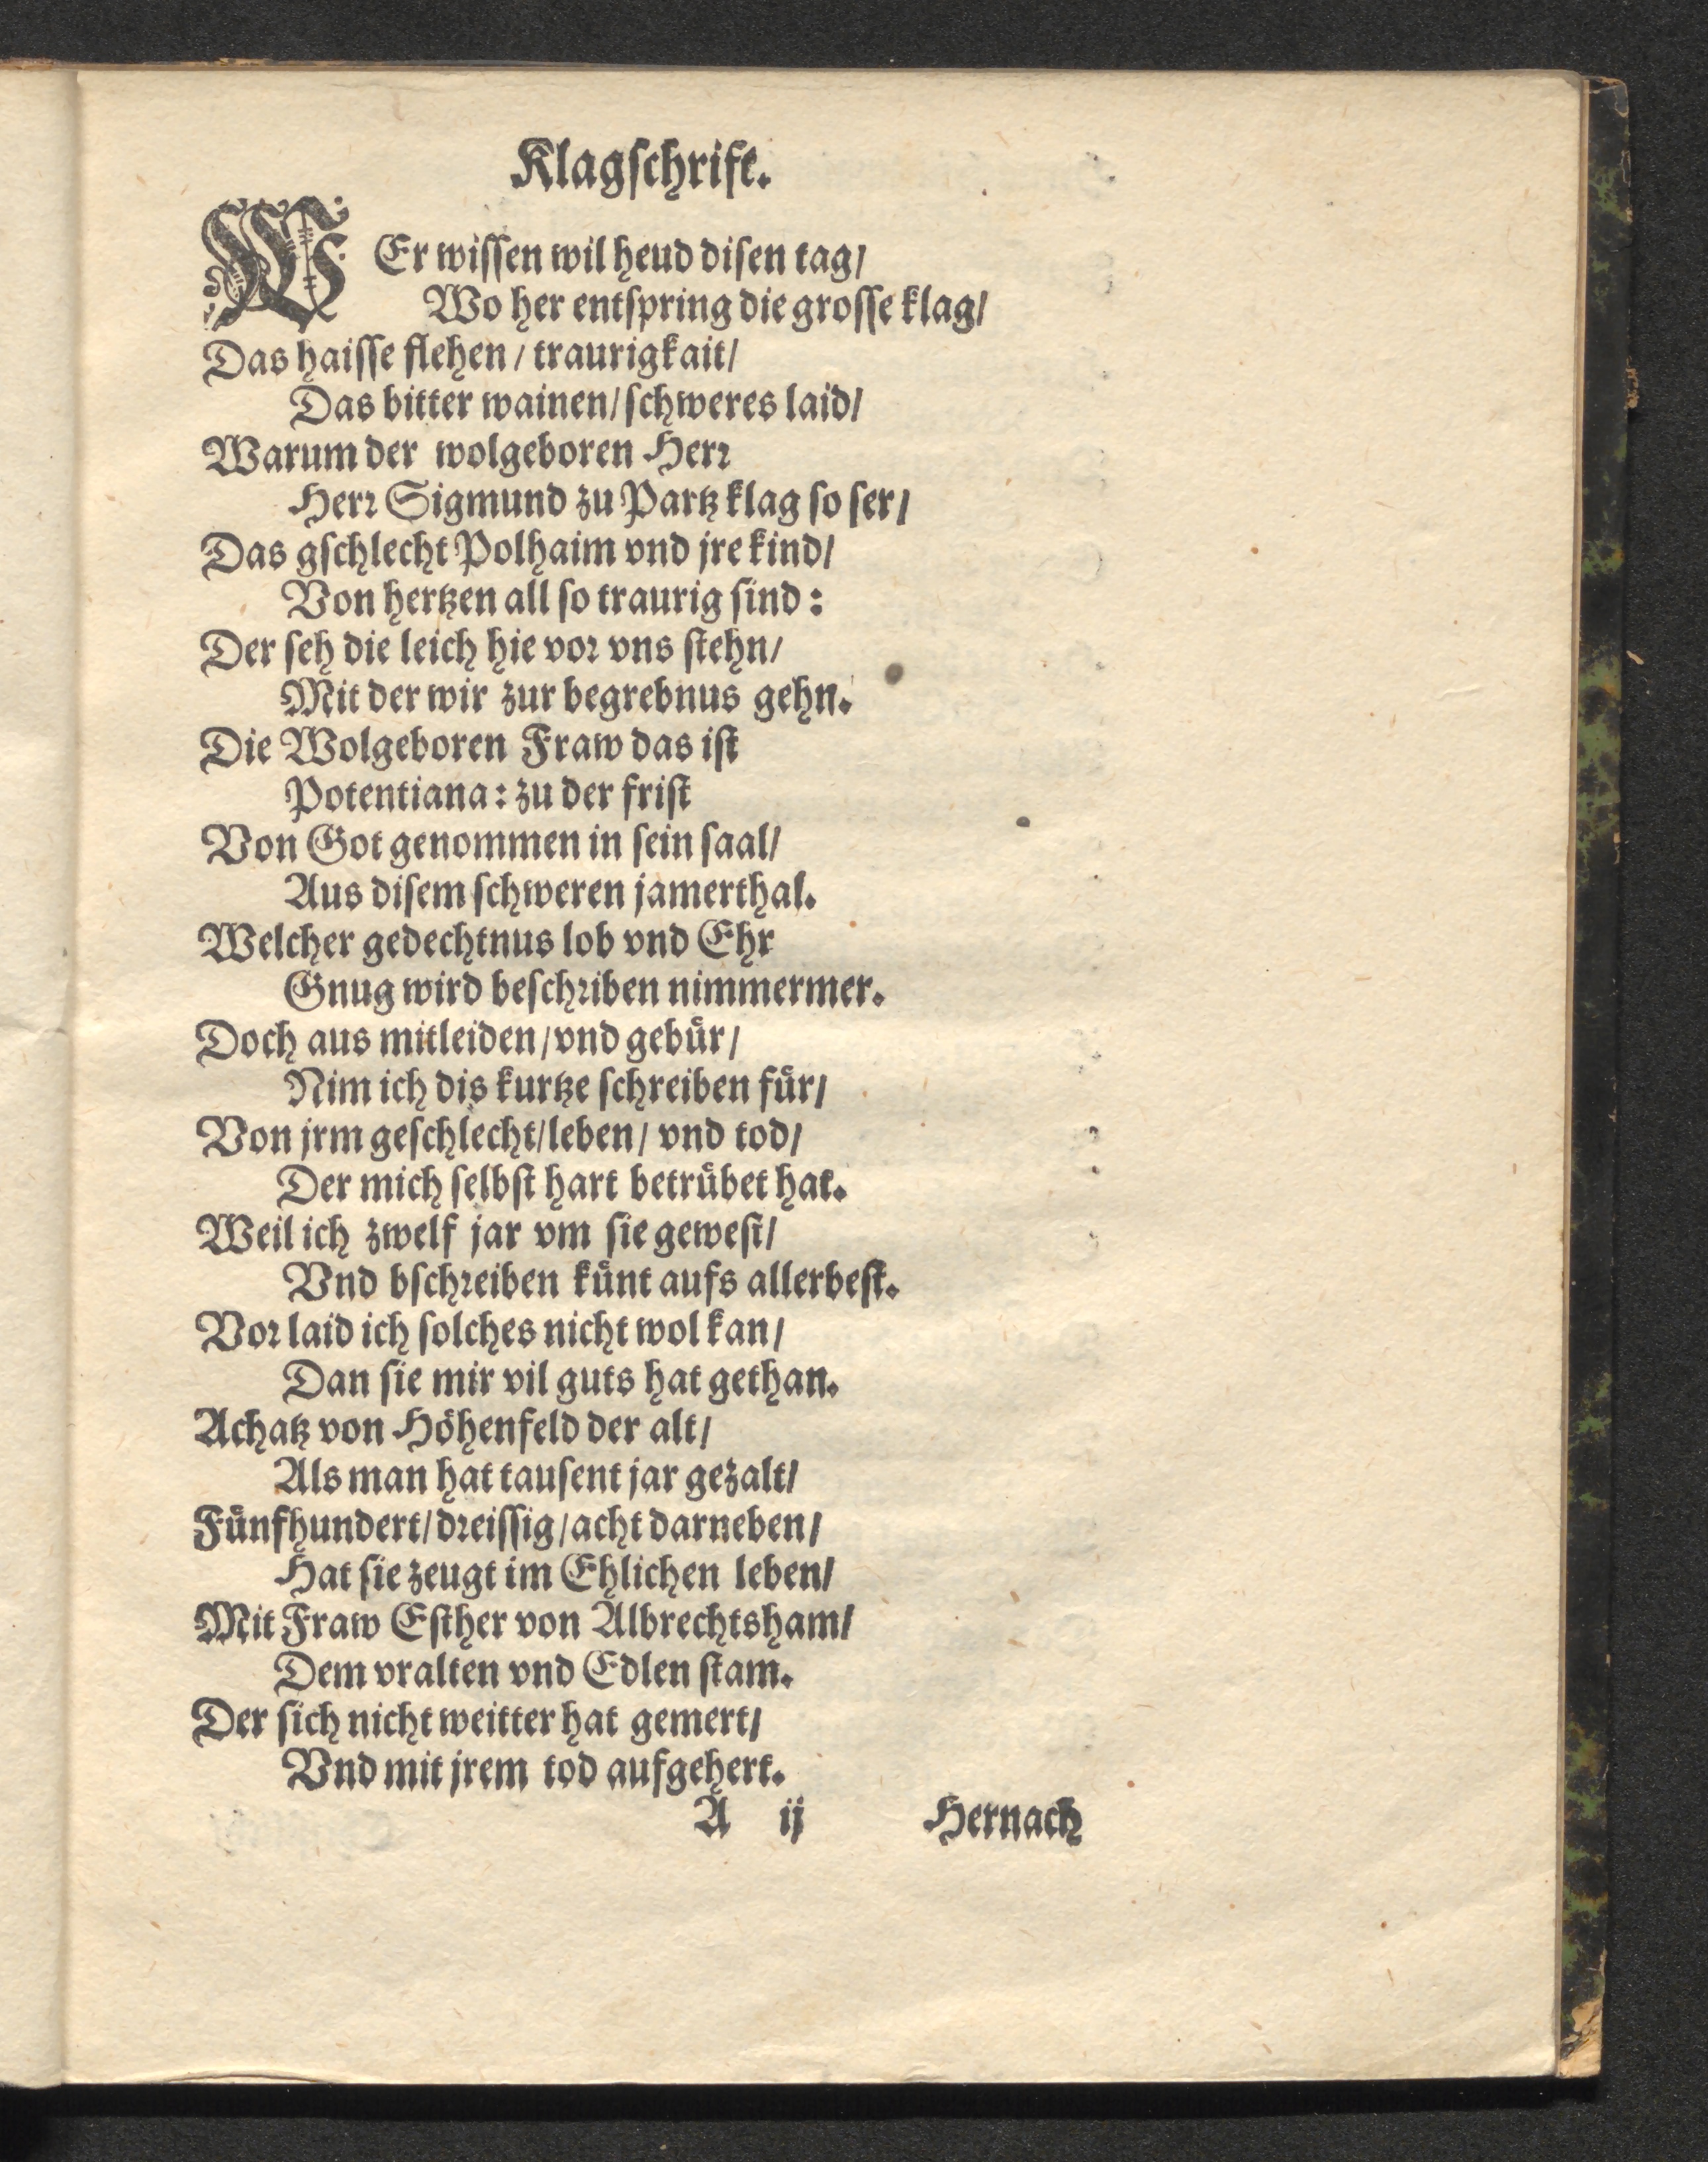 Klagſchrift.
WEr wiſſen wil heud diſen tag/
Wo her entſpring die groſſe klag/
Das haiſſe flehen / traurigkait/
Das bitter wainen/ ſchweres laid/
Warum der wolgeboren Herꝛ
Herꝛ Sigmund zu Partz klag ſo ſer/
Das gſchlecht Polhaim vnd jre kind/
Von hertzen all ſo traurig ſind :
Der ſeh die leich hie voꝛ vns ſtehn/
Mit der wir zur begrebnus gehn.
Die Wolgeboren Fraw das iſt
Potentiana : zu der friſt
Von Got genommen in ſein ſaal/
Aus diſem ſchweren jamerthal.
Welcher gedechtnus lob vnd Ehr
Gnug wird beſchꝛiben nimmermer.
Doch aus mitleiden/ vnd gebuͤr/
Nim ich dis kurtze ſchreiben fuͤr/
Von jrm geſchlecht/ leben/ vnd tod/
Der mich ſelbſt hart betruͤbet hat.
Weil ich zwelf jar vm ſie geweſt/
Vnd bſchꝛeiben kuͤnt aufs allerbeſt.
Voꝛ laid ich ſolches nicht wol kan/
Dan ſie mir vil guts hat gethan.
Achatz von Hoͤhenfeld der alt/
Als man hat tauſent jar gezalt/
Fuͤnfhundert/ dꝛeiſſig/ acht darneben/
Hat ſie zeugt im Ehlichen leben/
Mit Fraw Eſther von Albrechtsham/
Dem vralten vnd Edlen ſtam.
Der ſich nicht weitter hat gemert/
Vnd mit jrem tod aufgehert.
A ij Hernach